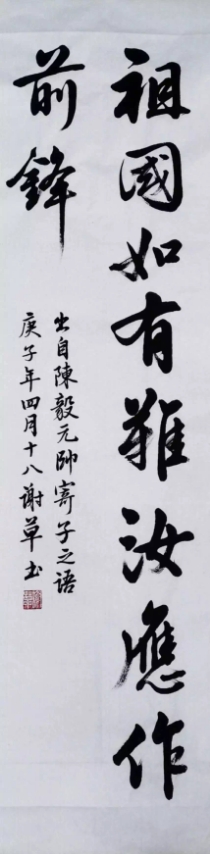 祖國如有難汝應作
前鋒
出自陳毅元帥寄子之语
庚子年四月十八谢草书